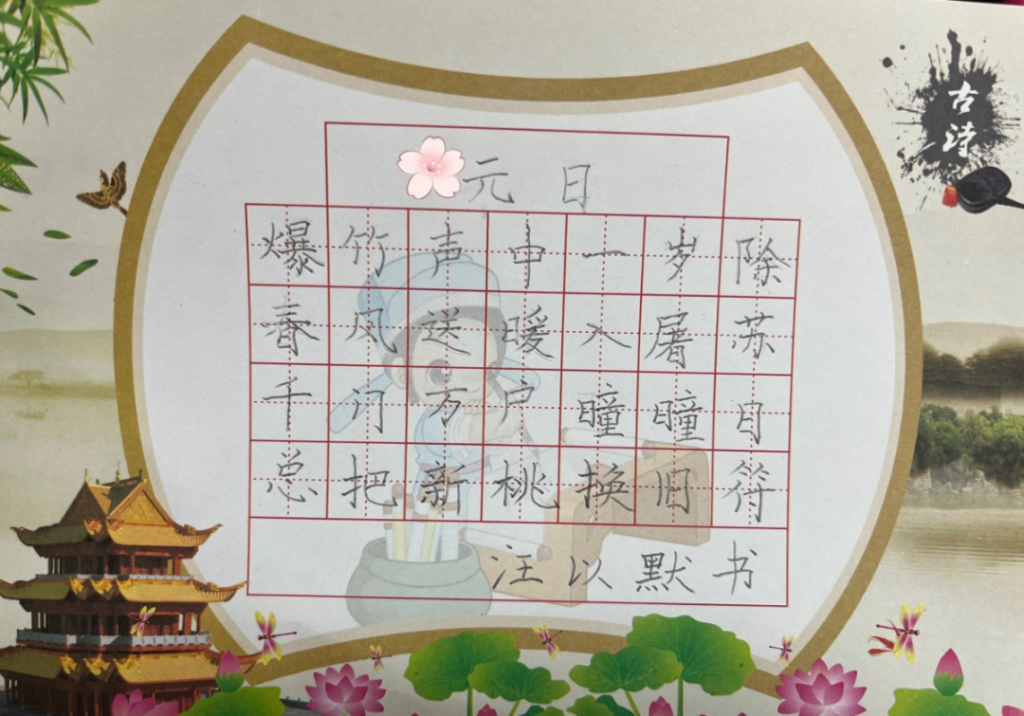 古诗
元日
爆竹声中一岁除
春风送暖入屠苏
千门万户曈曈日
总把新桃换旧符
汪以默书